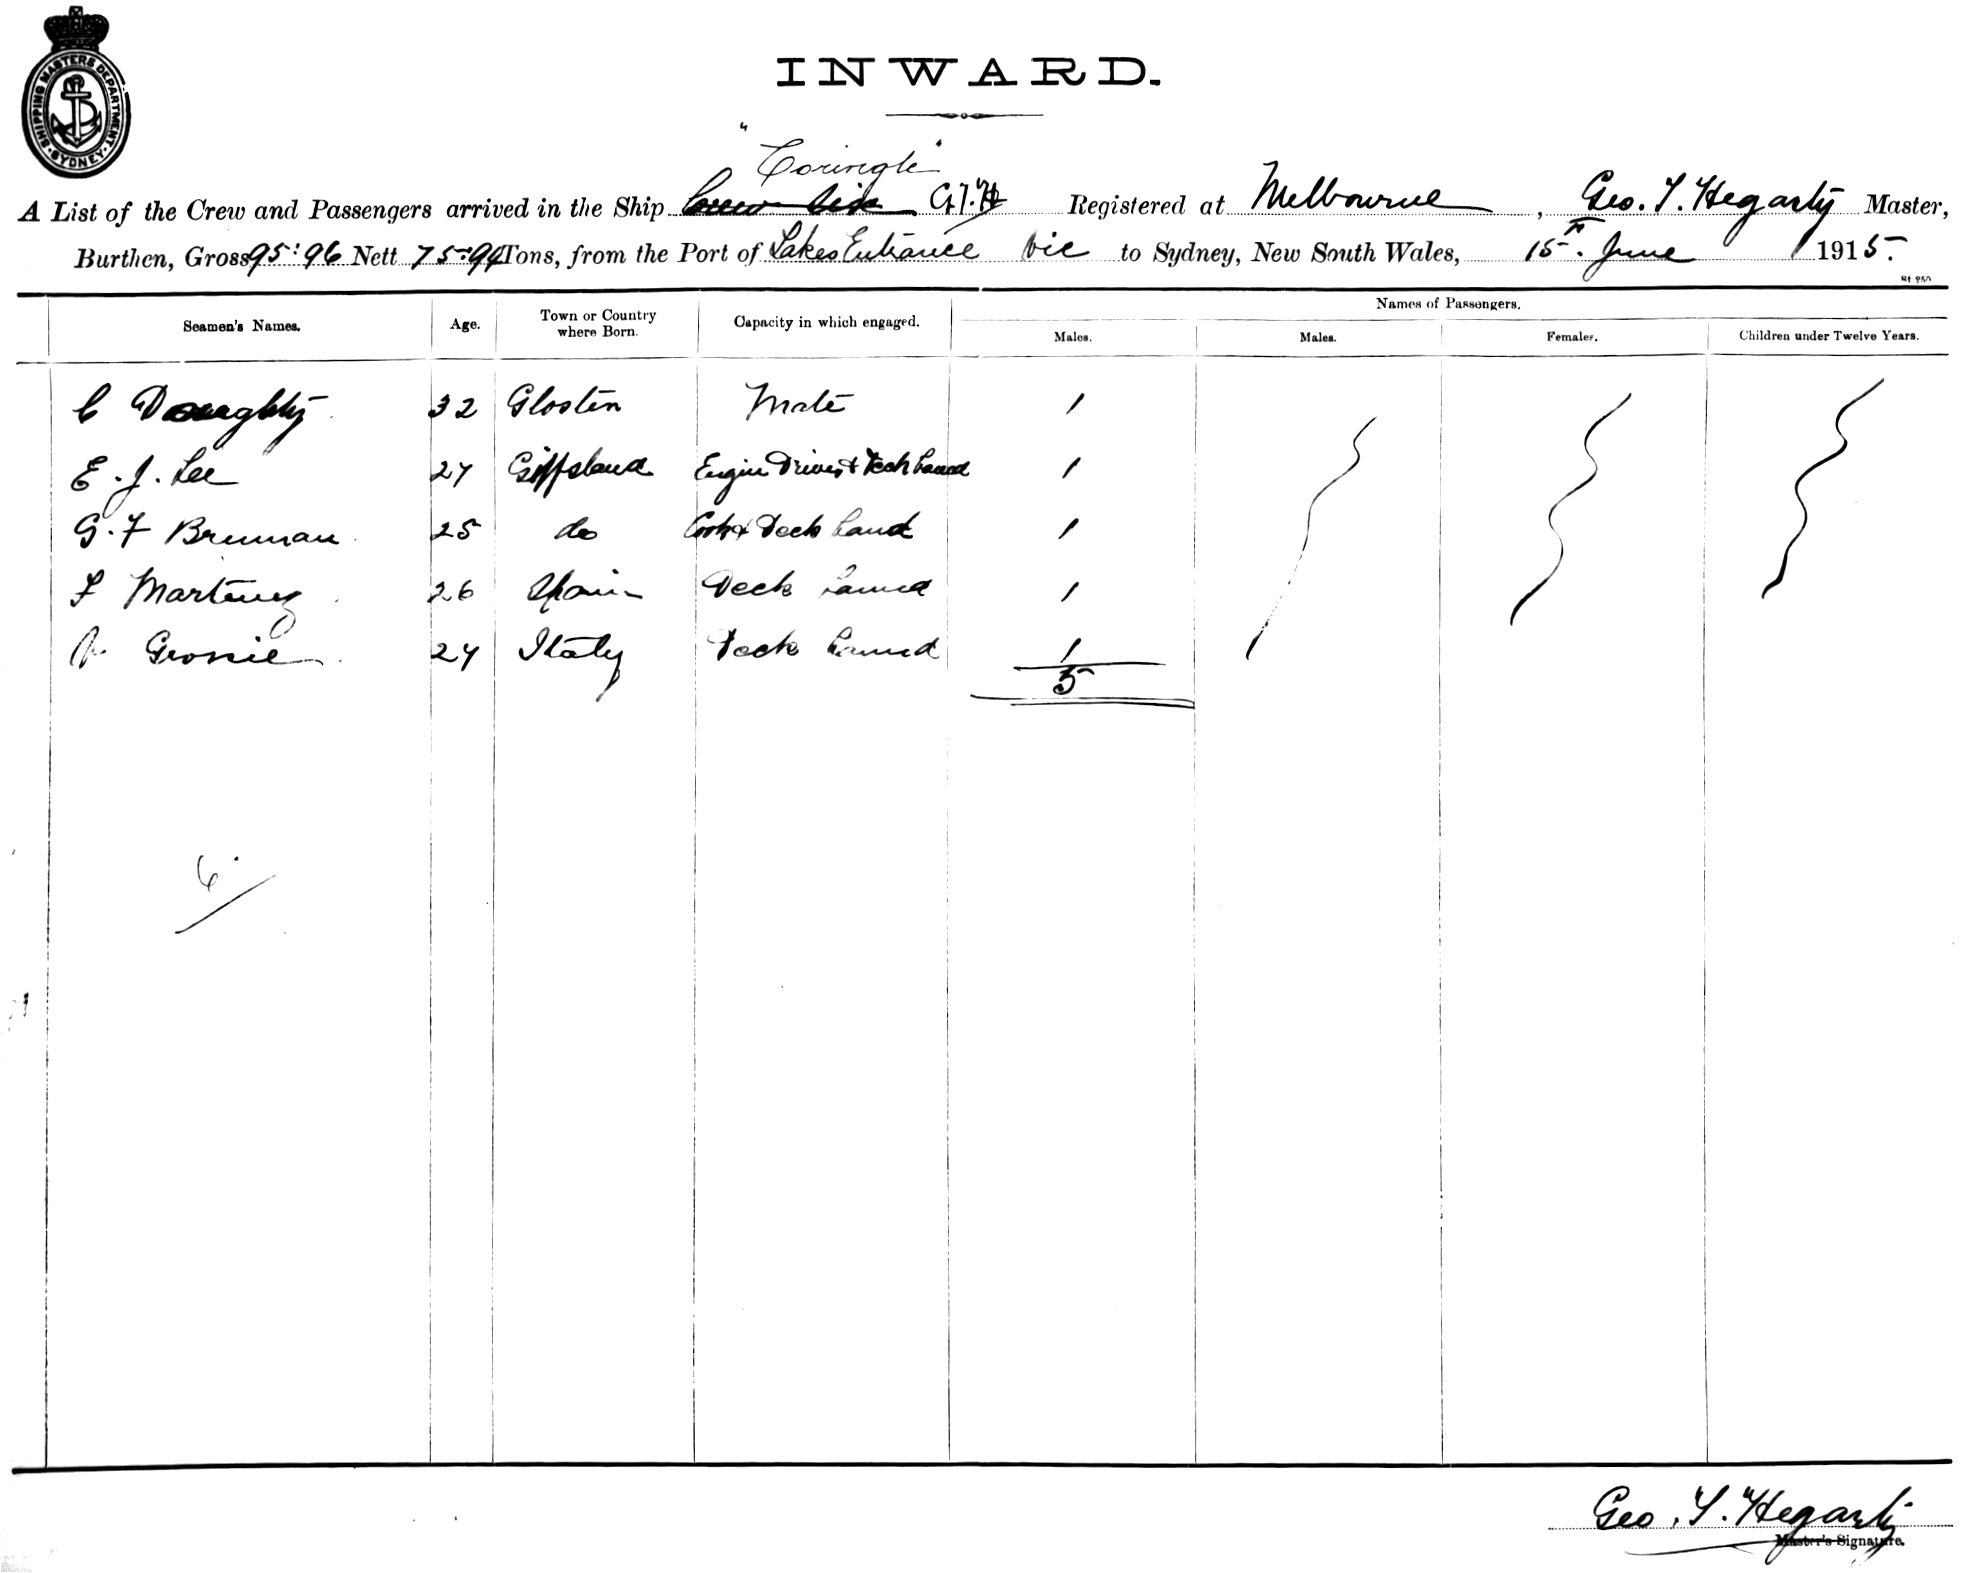 SHIPPING MASTERS DEPARTMENT · SYDNEY ·
INWARD.
"Coringle"
A List of the Crew and Passengers arrived in the Ship Crew list G.T.H Registered at Melbourne, Geo. T. Hegarty Master,
Burthen, Gross 95:96 Nett 75:94 Tons, from the Port of Lakes Entrance Vic to Sydney, New South Wales, 15th June 1915.
Seamen's Names. Age. Town or Country where Born. Capacity in which engaged. Names of Passengers.
Males. Males. Females. Children under Twelve Years.
C Doughty 32 Glosten Mate 1
E. J. Lee 27 Gippsland Engine Driver & Deck hand 1
G. F Brennan 25 do Cook & Deck hand 1
F Martinez 26 Spain Deck hand 1
Grosie 24 Italy Deck hand 1
5
6
Geo. T. Hegarty
Master's Signature.